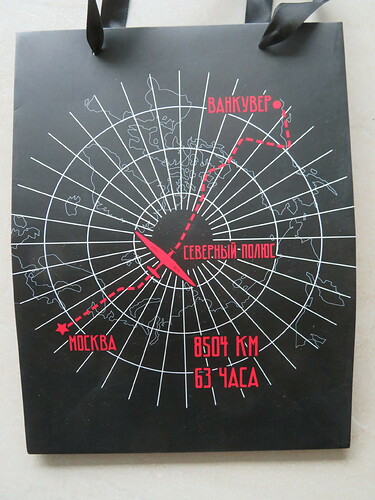 ВАНКУВЕР
СЕВЕРНЫЙ ПОЛЮС
МОСКВА
8504 КМ
63 ЧАСА